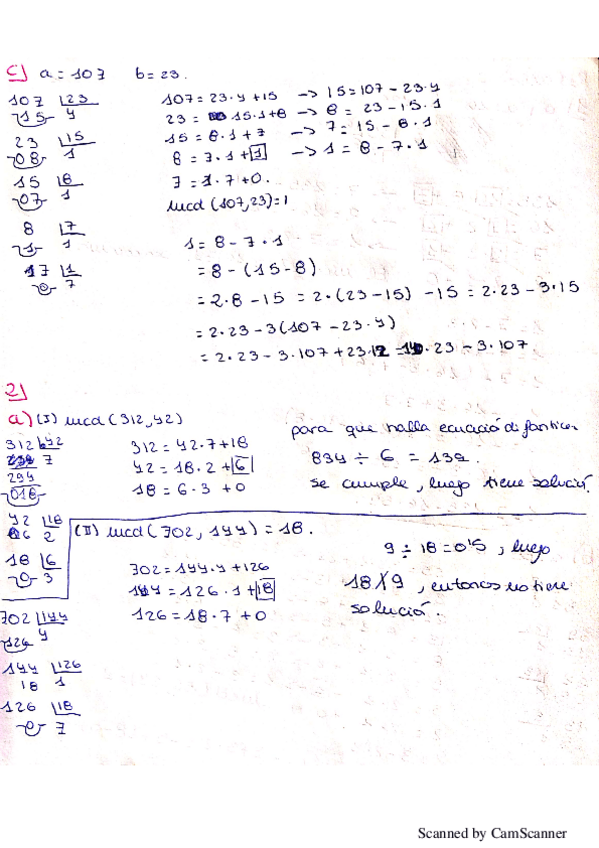 c) a = 107 b = 23.
107 |23
15 4
23 |15
08 1
15 |8
07 1
8 |7
1 1
17 |1
0 7
107 = 23·4 + 15 → 15 = 107 - 23·4
23 = 15·1 + 8 → 8 = 23 - 15·1
15 = 8·1 + 7 → 7 = 15 - 8·1
8 = 7·1 + 1 → 1 = 8 - 7·1
7 = 1·7 + 0.
mcd (107,23) = 1
1 = 8 - 7·1
= 8 - (15 - 8)
= 2·8 - 15 = 2·(23 - 15) - 15 = 2·23 - 3·15
= 2·23 - 3(107 - 23·4)
= 2·23 - 3·107 + 23·12 = 14·23 - 3·107.
2)
a) (I) mcd (312, 42)
312 |42
7
294
018
42 |18
06 2
18 |6
0 3
312 = 42·7 + 18
42 = 18·2 + 6
18 = 6·3 + 0
para que halla ecuació
834 ÷ 6 = 139.
se cumple, luego tiene solució.
(II) mcd (702, 144) = 18.
702 = 144·4 + 126
144 = 126·1 + 18
126 = 18·7 + 0
9 ÷ 18 = 0'5, luego
18 ∤ 9, entonces no tiene
solució.
702 |144
126 4
144 |126
18 1
126 |18
0 7
Scanned by CamScanner